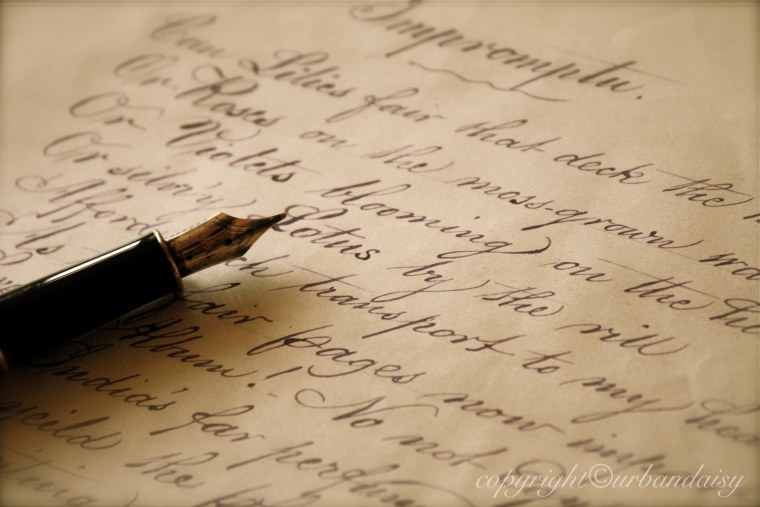 Impromptu.
Can Lilies fair that deck the
Or Roses on the moss-grown
Or Violets blooming on the
Or silv'ry Lotus by the rill
Afford transport to my
As
fair pages now
Album! No not
India's far
the
copyright©urbandaisy